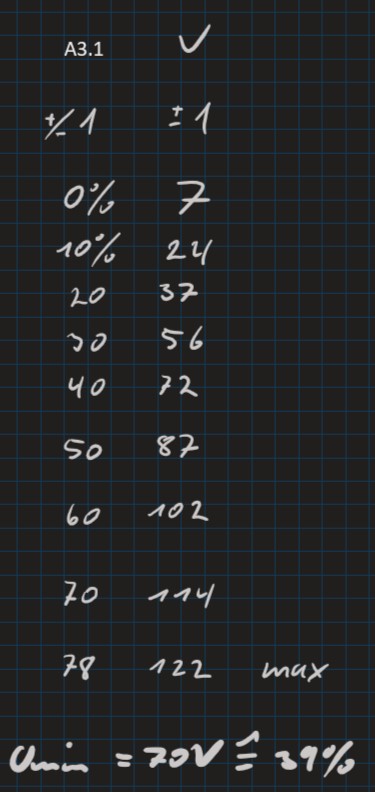 A3.1 V
+/- 1 ± 1
0% 7
10% 24
20 37
30 56
40 72
50 87
60 102
70 114
78 122 max
Umin = 70V ≙ 39%